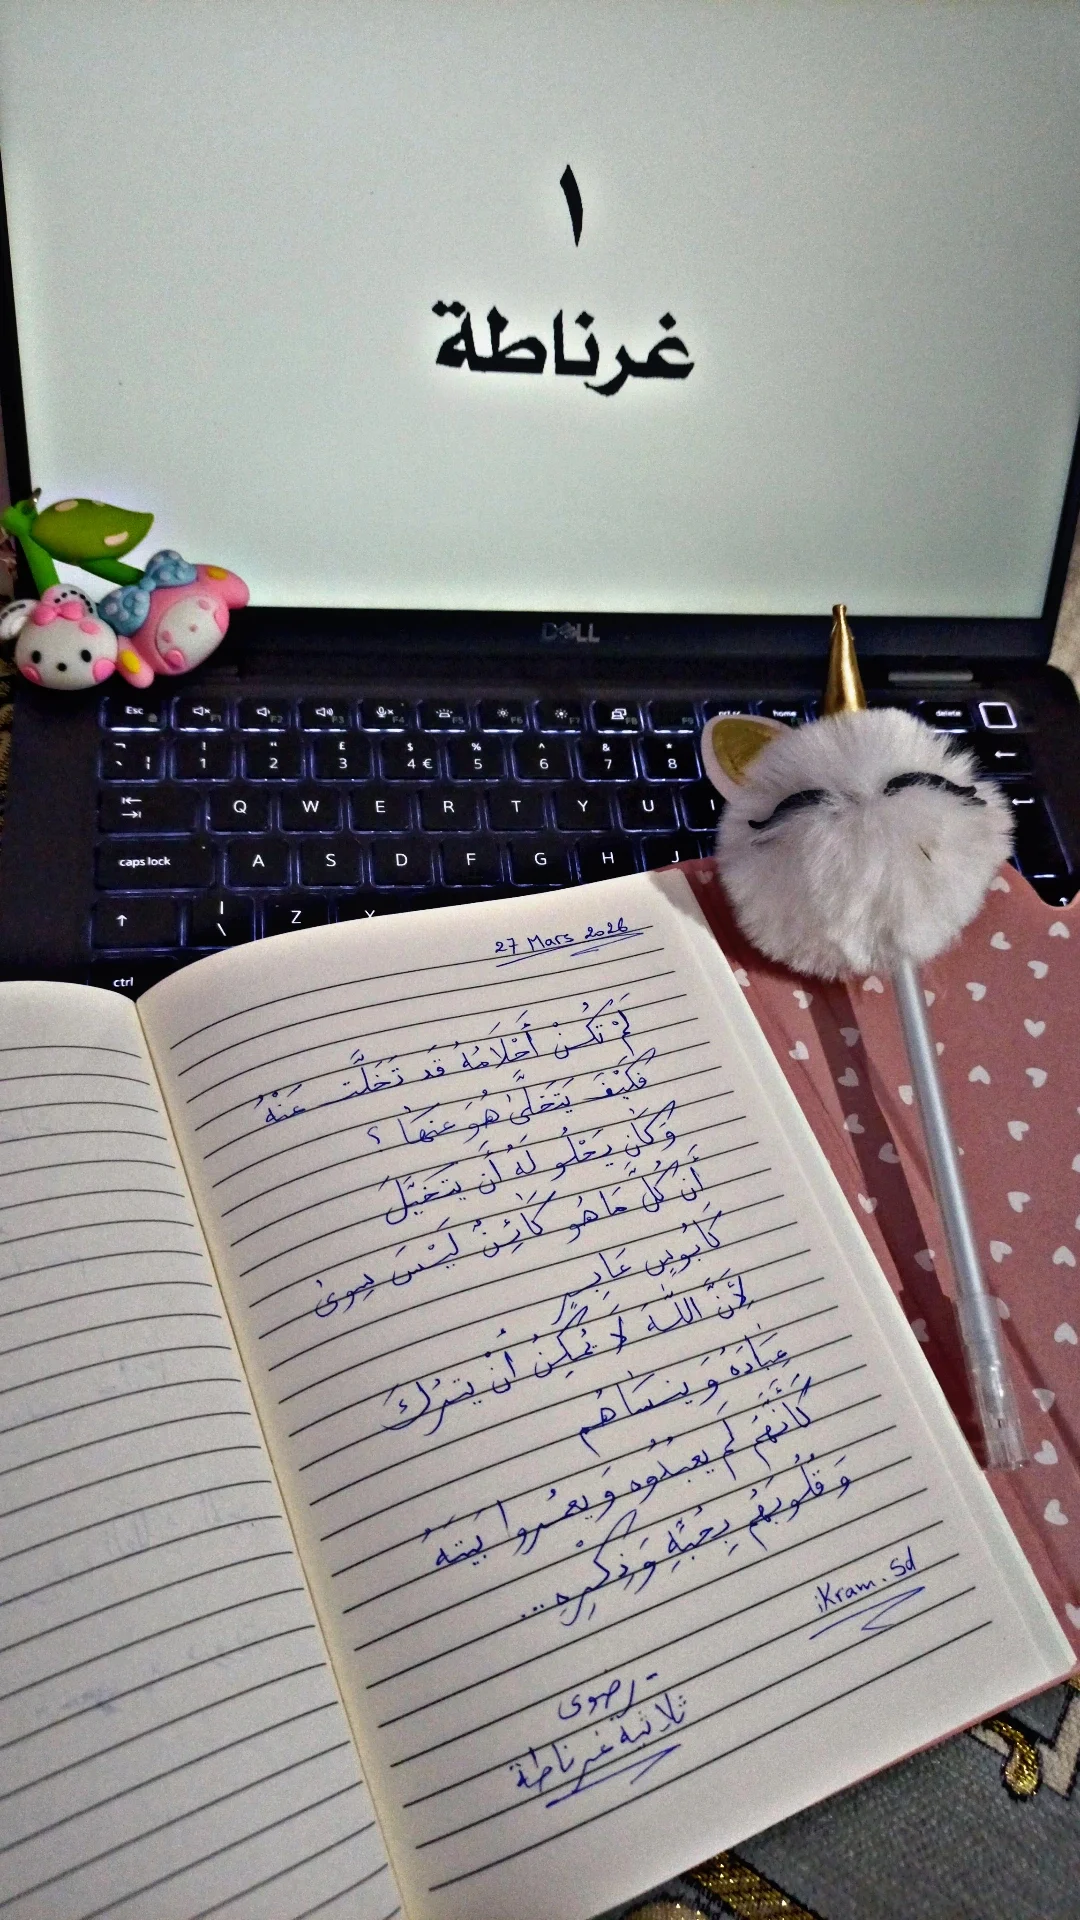 ١
غرناطة
DELL
Esc F2 F3 F4 F5 F6 F7 F8 F9 home delete
! " £ $ % ^ & *
1 2 3 4 € 5 6 7 8
Q W E R T Y U I
caps lock A S D F G H J
| \ Z X
ctrl
27 Mars 2026
لَمْ تَكُنْ أَحْلَامُهُ قَد تَخَلَّت عَنْهُ
فَكَيْفَ يَتَخَلَّىٰ هُوَ عَنهَا ؟
وَكَان يَحْلُو لَهُ أَن يَتَخَيَّلَ
أَن كُلَّ مَاهُو كَائِنٌ لَيْسَ سِوىٰ
كَابُوسٍ عَابِرٍ
لِأَنَّ اللَّهَ لَا يُمْكِنُ أَنْ يترُكَ
عِبَادَهُ وَ ينسَاهُم
كَأَنَّهُم لَم يعبُدُوه وَ يعمُروا بَيتَهُ
وَ قُلُوبَهُم بِحُبِّهِ وَ ذِكْرِهِ ...
iKram.Sd
- رضوى
ثلاثية غرناطة